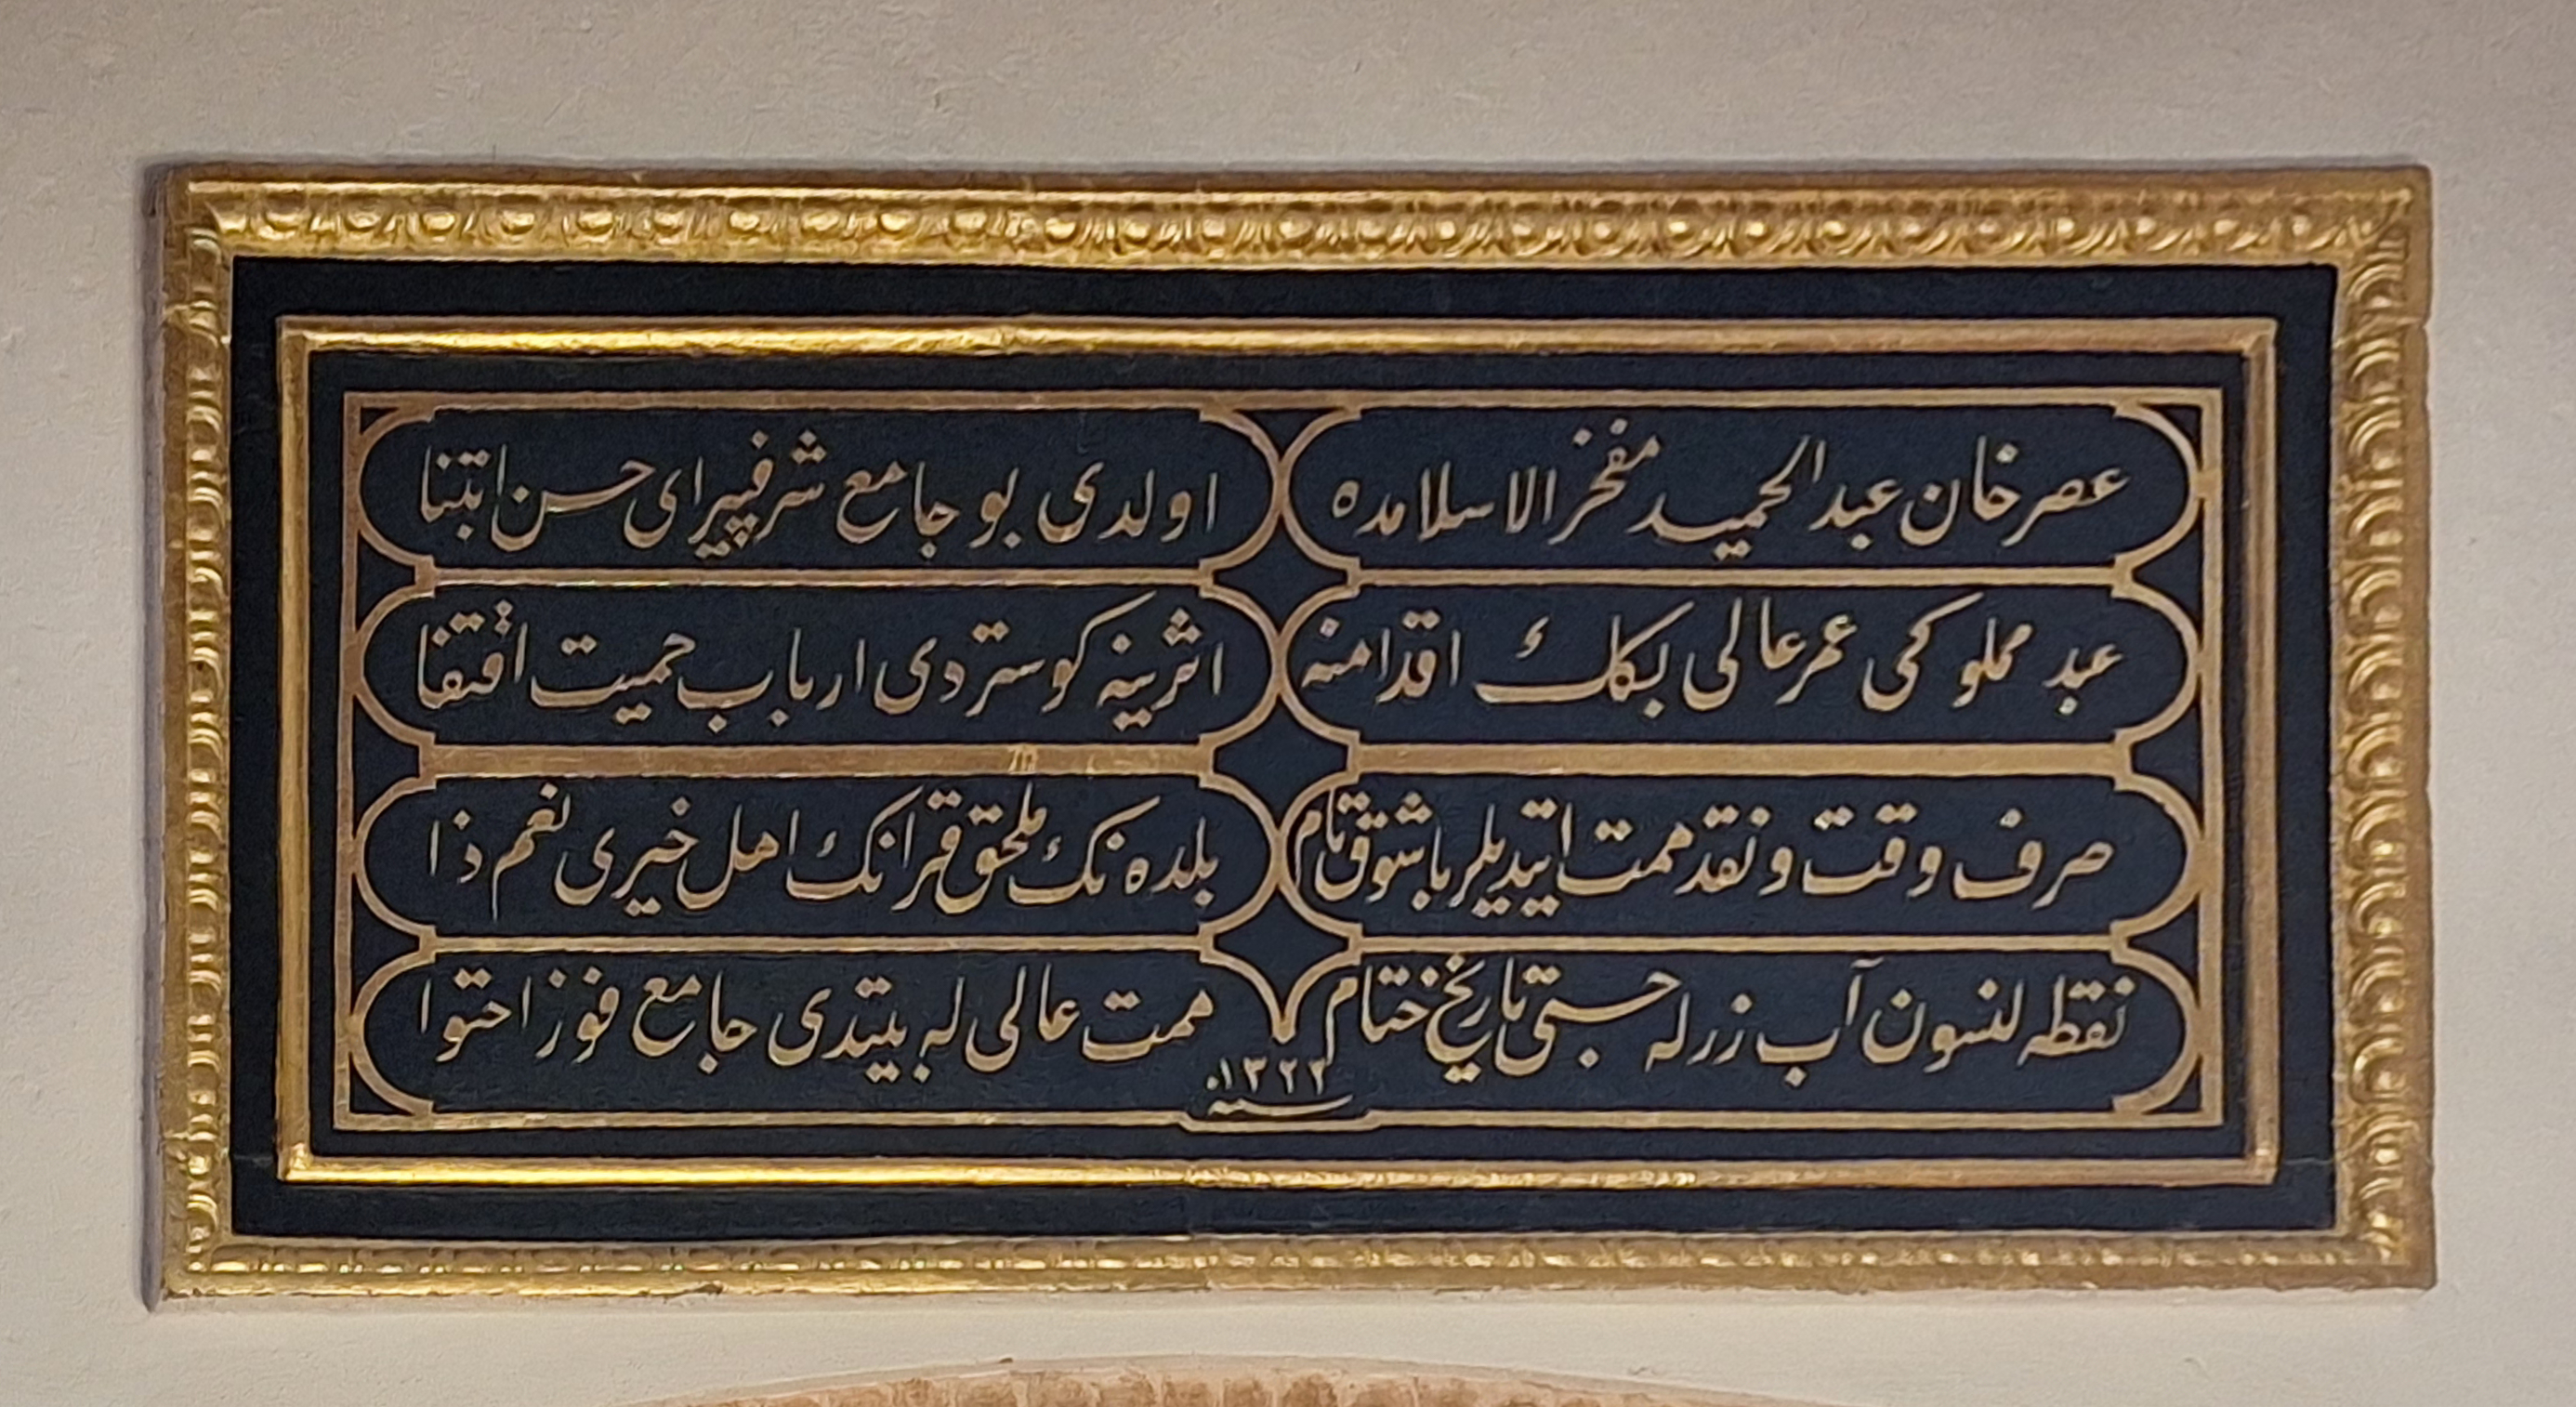 عصر خان عبد الحميد مفخر الاسلامده
اولدى بو جامع شرفپيراى حسن ابتنا
عبد مملوكى عمر عالى بكك اقدامنه
اثرينه كوستردى ارباب حميت اقتفا
صرف وقت و نقد همت ايتديلر با شوق تام
بلده نك ملحق قرانك اهل خيرى نعم ذا
نقطه لنسون آب زرله حبتى تاريخ ختام
همت عالى له بيتدى جامع فوز احتوا
سنه ١٣٢٢